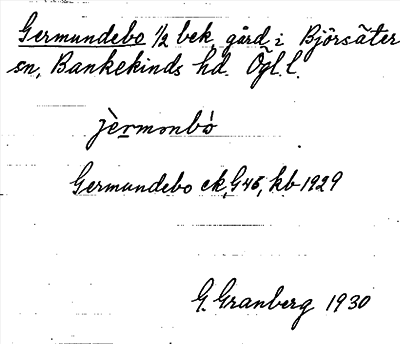 Germundebo 1/2 bek. gård i Björsäter
sn, Bankekinds hd. Ögl. l.
jèrmonbó
Germundebo ek, G45, kb 1929
G. Granberg 1930